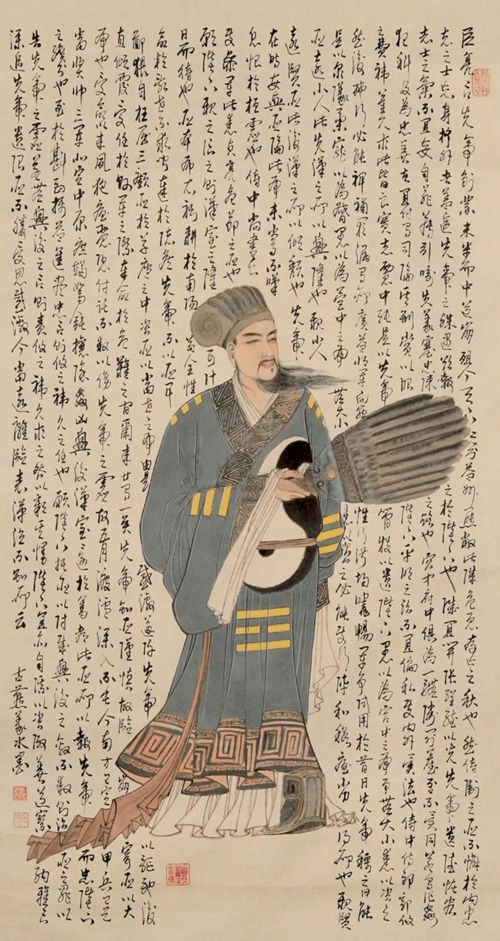 臣亮言先帝創業未半而中道崩殂今天下三分益州疲敝此誠危急存亡之秋也然侍衛之臣不懈於內忠
志之士忘身於外者蓋追先帝之殊遇欲報之於陛下也誠宜開張聖聽以光先帝遺德恢弘
志士之氣不宜妄自菲薄引喻失義以塞忠諫之路也宮中府中俱為一體陟罰臧否不宜異同若有作姦
犯科及為忠善者宜付有司論其刑賞以昭陛下平明之治不宜偏私使內外異法也侍中侍郎郭攸
之費禕董允等此皆良實志慮忠純是以先帝簡拔以遺陛下愚以為宮中之事事無大小悉以咨之
然後施行必能裨補闕漏有所廣益將軍向寵性行淑均曉暢軍事試用於昔日先帝稱之曰能
是以眾議舉寵以為督愚以為營中之事無大小悉以咨之必能使行陣和穆優劣得所也親賢
臣遠小人此先漢之所以興隆也親小人
遠賢臣此後漢之所以傾頹也先帝
在時每與臣論此事未嘗不嘆
息痛恨於桓靈也侍中尚書長
史參軍此悉貞亮死節之臣也
願陛下親之信之則漢室之隆可計
日而待也臣本布衣躬耕於南陽苟全性
命於亂世不求聞達於諸侯先帝不以臣卑
鄙猥自枉屈三顧臣於草廬之中咨臣以當世之事由是感激遂許先帝以驅馳後
值傾覆受任於敗軍之際奉命於危難之間爾來廿有一年矣先帝知臣謹慎故臨崩寄臣以大
事也受命以來夙夜憂嘆恐付託不效以傷先帝之明故五月渡瀘深入不毛今南方已定甲兵已足
當獎帥三軍北定中原庶竭駑鈍攘除姦凶興復漢室還於舊都此臣所以報先帝而忠陛下
之職分也至於斟酌損益進盡忠言則攸之禕允之任也願陛下託臣以討賊興復之效不效則治臣之罪以
告先帝之靈若無興德之言則責攸之禕允等之咎以彰其慢陛下亦宜自謀以咨諏善道察納雅言
深追先帝遺詔臣不勝受恩感激今當遠離臨表涕泣不知所云